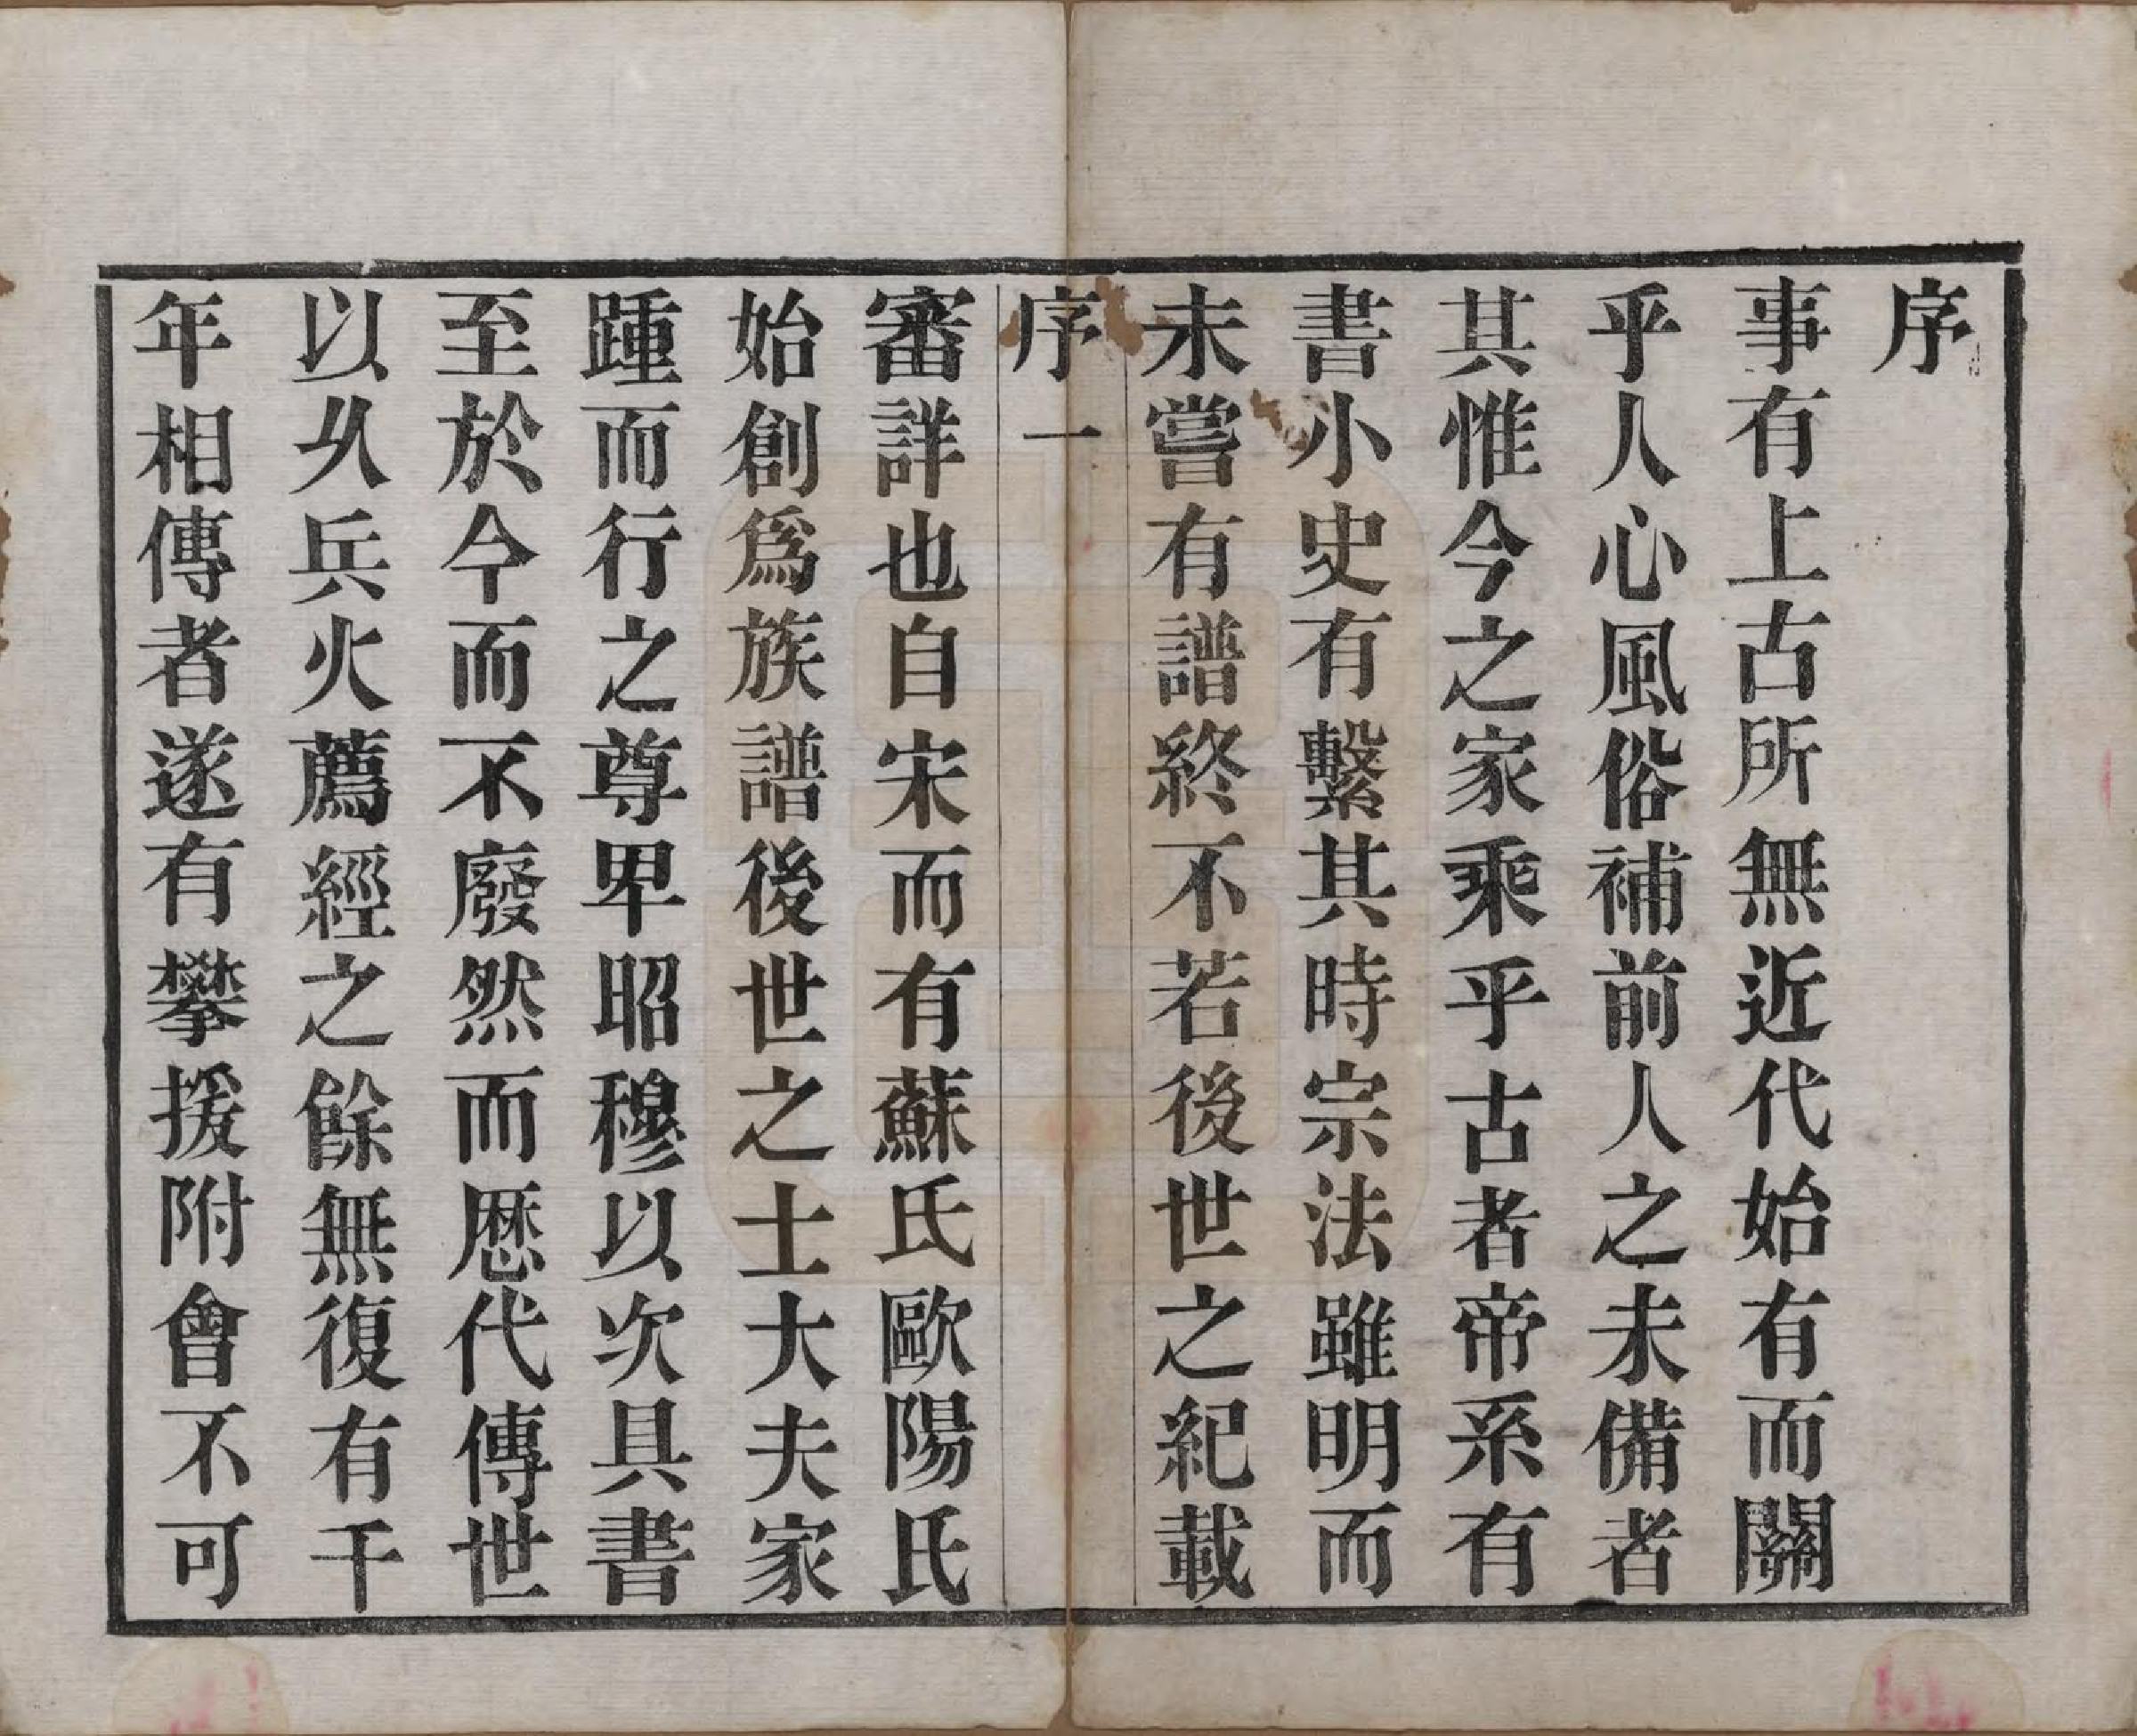 序
事有上古所無近代始有而關
乎人心風俗補前人之未備者
其惟今之家乘乎古者帝系有
書小史有繫其時宗法雖明而
未嘗有譜終不若後世之紀載
序一
審詳也自宋而有蘇氏歐陽氏
始創爲族譜後世之士大夫家
踵而行之尊卑昭穆以次具書
至於今而不廢然而歴代傳世
以久兵火薦經之餘無復有千
年相傳者遂有攀援附會不可